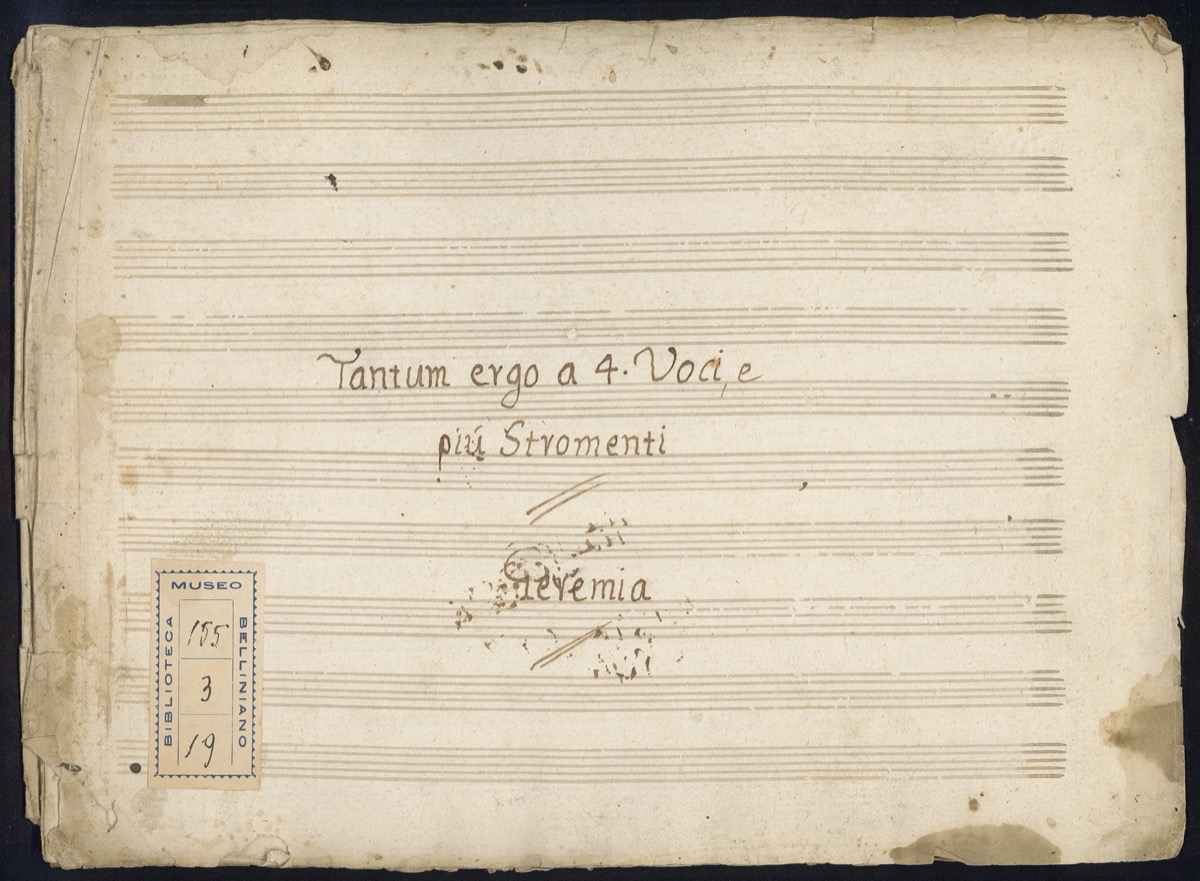 Tantum ergo a 4. Voci, e
più Stromenti
Geremia
MUSEO
BIBLIOTECA
BELLINIANO
155
3
19